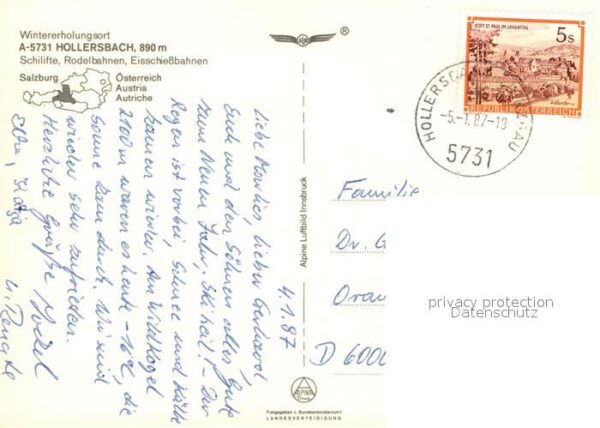 Wintererholungsort
A-5731 HOLLERSBACH, 890 m
Schilifte, Rodelbahnen, Eisschießbahnen
Salzburg
Österreich
Austria
Autriche
®
STIFT ST. PAUL IM LAVANTTAL
5s
REPUBLIK ÖSTERREICH
HOLLERS
-5.-1.87-18
5731
4.1.87
Liebe Lieber Gerhard
Euch und den Söhnen alles Gute
zum Neuen Jahr, Ski heil! - Der
Regen ist vorbei, Schnee und Kälte
kamen wieder. Am Wildkogel
2100 m waren es heute -16°C, die
Sonne kam durch. Wir sind
wieder sehr zufrieden.
Herzliche Grüße
Katja
u. Renate
Alpine Luftbild Innsbruck
Familie
Dr. G
Oran
D 6000
privacy protection
Datenschutz
ALPINE
Freigegeben v. Bundesministerium f.
LANDESVERTEIDIGUNG